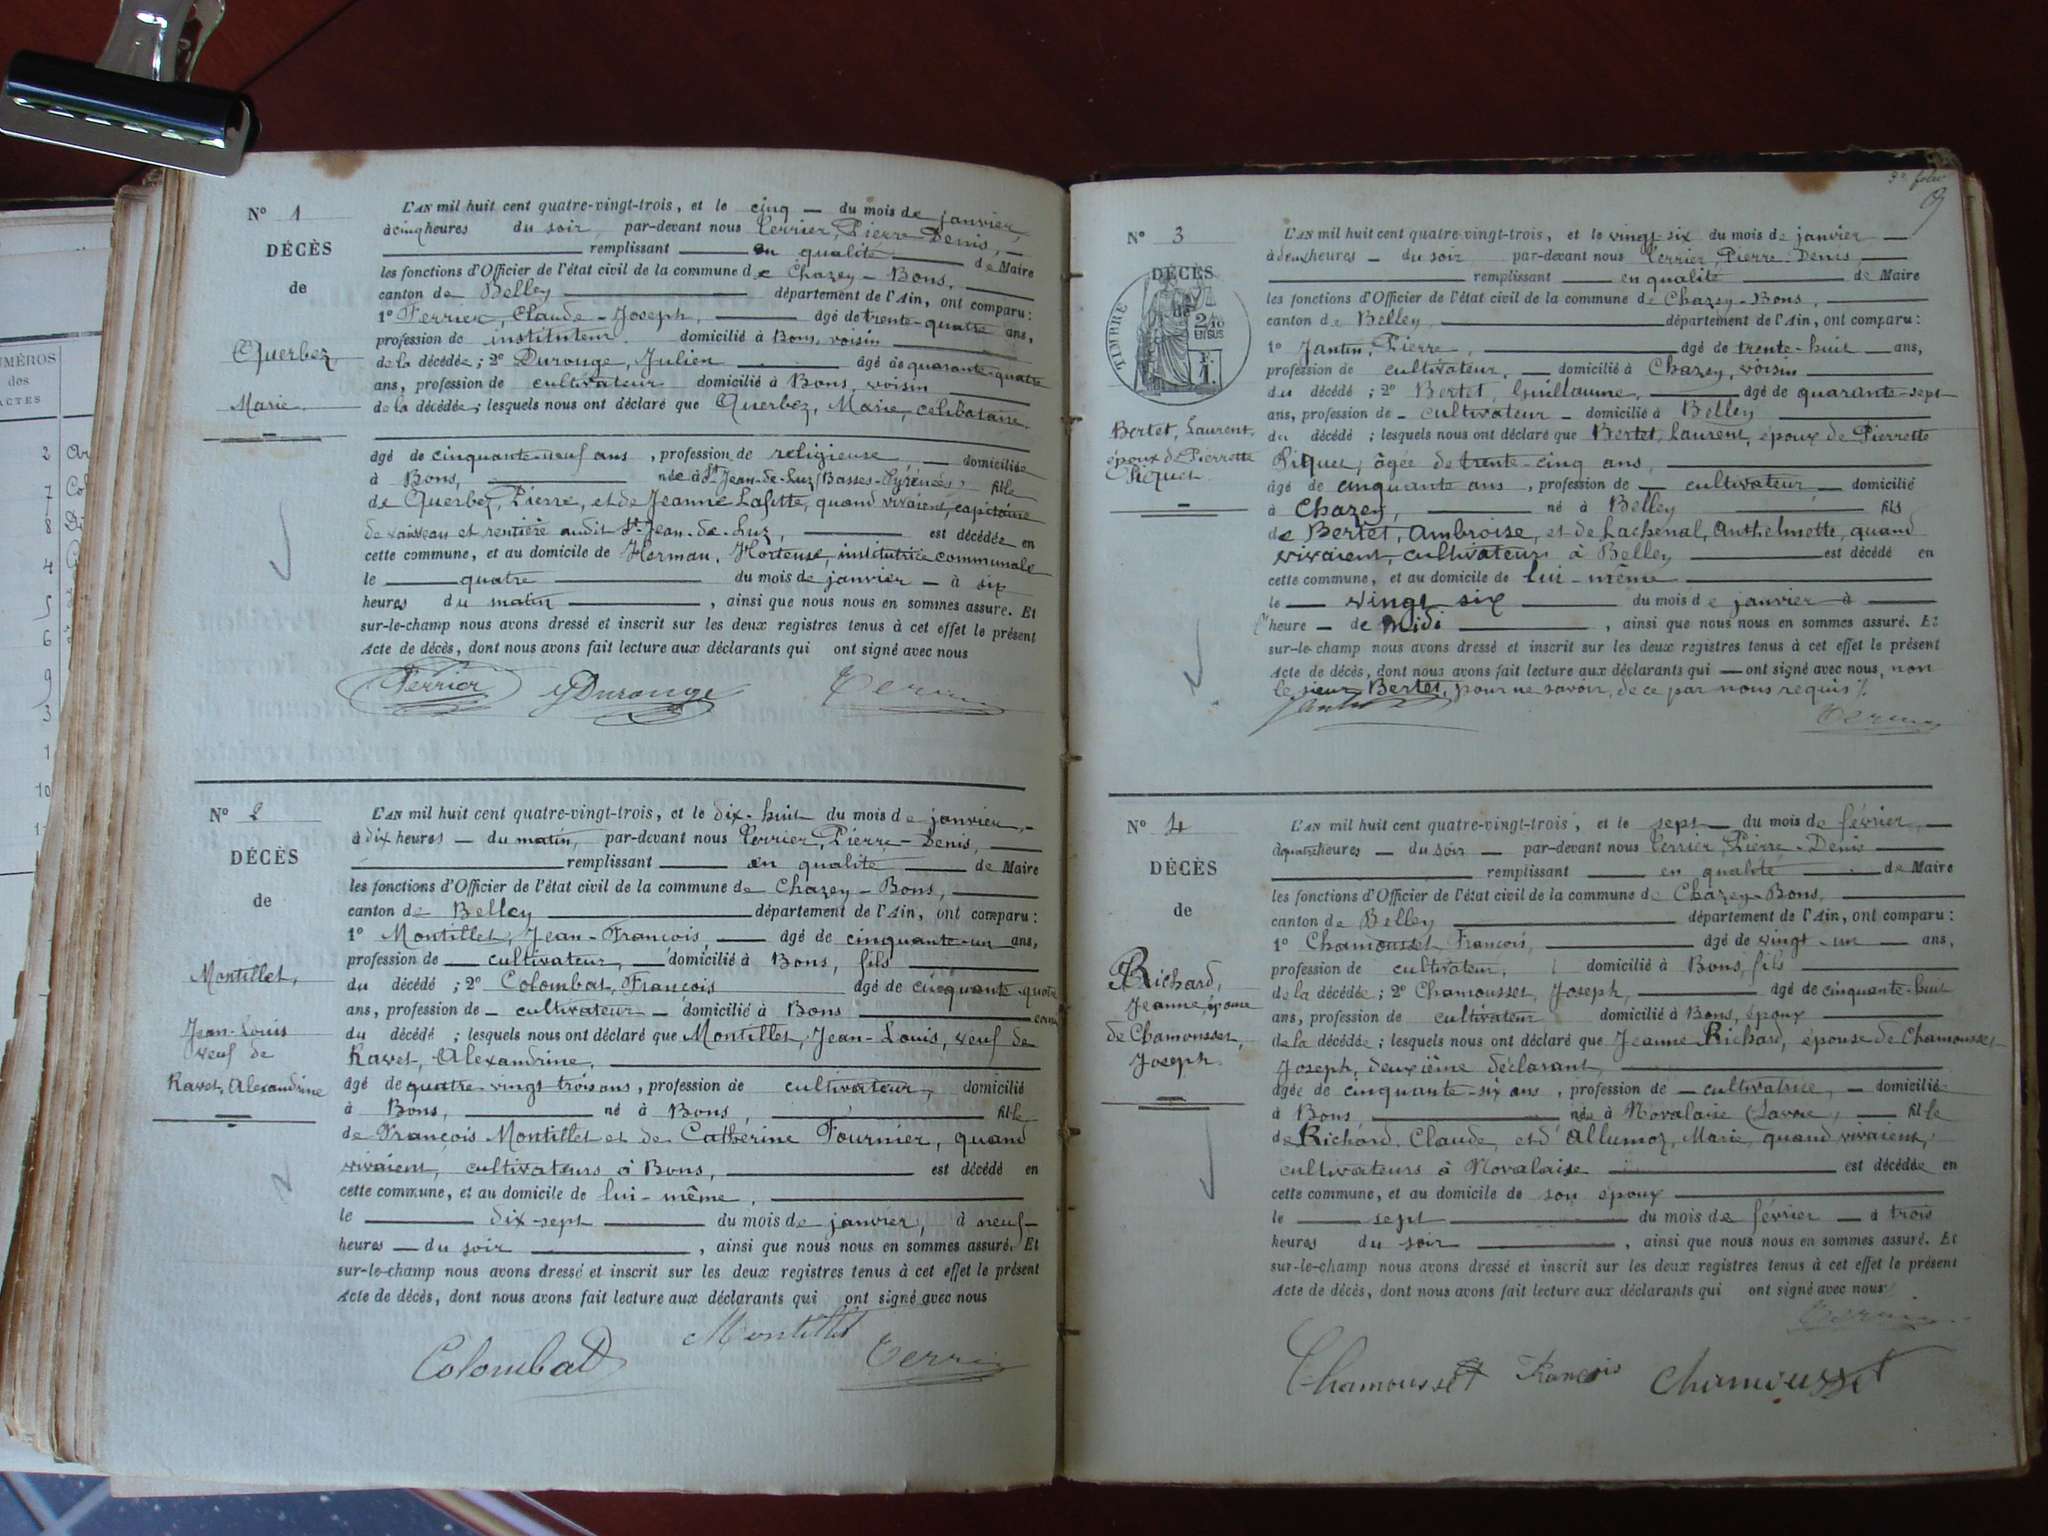 NUMÉROS
des
ACTES
2
7
8
4
5
6
9
3
1
10
N° 1
DÉCÈS
de
Querbez
Marie
L'AN mil huit cent quatre-vingt-trois, et le cinq du mois de janvier,
à cinq heures du soir, par-devant nous Perrier, Pierre Denis,
remplissant en qualité de Maire
les fonctions d'Officier de l'état civil de la commune de Chazey-Bons,
canton de Belley département de l'Ain, ont comparu :
1° Ferrier, Claude-Joseph, âgé de trente-quatre ans,
profession de instituteur domicilié à Bons, voisin
de la décédée ; 2° Durouge, Julien âgé de quarante-quatre
ans, profession de cultivateur domicilié à Bons, voisin
de la décédée ; lesquels nous ont déclaré que Querbez, Marie, célibataire,
âgé de cinquante-neuf ans, profession de religieuse domiciliée
à Bons, née à St Jean-de-Luz (Basses-Pyrénées) fille
de Querbez, Pierre, et de Jeanne Lafitte, quand vivaient, capitaine
de vaisseau et rentière audit St Jean-de-Luz, est décédée en
cette commune, et au domicile de Herman, Hortense, institutrice communale
le quatre du mois de janvier à six
heures du matin, ainsi que nous nous en sommes assuré. Et
sur-le-champ nous avons dressé et inscrit sur les deux registres tenus à cet effet le présent
Acte de décès, dont nous avons fait lecture aux déclarants qui ont signé avec nous
Ferrier JDurouge
N° 2
DÉCÈS
de
Montillet,
Jean-Louis
veuf de
Ravet, Alexandrine
L'AN mil huit cent quatre-vingt-trois, et le dix-huit du mois de janvier,
à dix heures du matin, par-devant nous Perrier, Pierre-Denis,
remplissant en qualité de Maire
les fonctions d'Officier de l'état civil de la commune de Chazey-Bons,
canton de Belley département de l'Ain, ont comparu :
1° Montillet, Jean-François, âgé de cinquante-un ans,
profession de cultivateur, domicilié à Bons, fils
du décédé ; 2° Colombat, François âgé de cinquante-quatre
ans, profession de cultivateur domicilié à Bons
du décédé ; lesquels nous ont déclaré que Montillet, Jean-Louis, veuf de
Ravet, Alexandrine,
âgé de quatre-vingt-trois ans, profession de cultivateur, domicilié
à Bons, né à Bons, fil-le
de François Montillet et de Cathérine Fournier, quand
vivaient, cultivateurs à Bons, est décédé en
cette commune, et au domicile de lui-même,
le dix-sept du mois de janvier, à neuf
heures du soir, ainsi que nous nous en sommes assuré. Et
sur-le-champ nous avons dressé et inscrit sur les deux registres tenus à cet effet le présent
Acte de décès, dont nous avons fait lecture aux déclarants qui ont signé avec nous
Colombat Montillet
3e folio
N° 3
DÉCÈS
TIMBRE
2/10
EN SUS
Bertet, Laurent,
époux de Pierrette
Piquet
L'AN mil huit cent quatre-vingt-trois, et le vingt-six du mois de janvier
à deux heures du soir, par-devant nous Perrier, Pierre-Denis,
remplissant en qualité de Maire
les fonctions d'Officier de l'état civil de la commune de Chazey-Bons,
canton de Belley, département de l'Ain, ont comparu :
1° Jantin, Pierre, âgé de trente-huit ans,
profession de cultivateur, domicilié à Chazey, voisin
du décédé ; 2° Bertet, Guillaume, âgé de quarante-sept
ans, profession de cultivateur domicilié à Belley
du décédé ; lesquels nous ont déclaré que Bertet, Laurent, époux de Pierrette
Piquet, âgée de trente-cinq ans,
âgé de cinquante ans, profession de cultivateur domicilié
à Chazey, né à Belley fils
de Bertet, Ambroise, et de Lachenal, Anthelmette, quand
vivaient, cultivateurs à Belley est décédé en
cette commune, et au domicile de lui-même
le vingt six du mois de janvier à
l'heure de midi, ainsi que nous nous en sommes assuré. Et
sur-le-champ nous avons dressé et inscrit sur les deux registres tenus à cet effet le présent
Acte de décès, dont nous avons fait lecture aux déclarants qui ont signé avec nous, non
le sieur Bertet, pour ne savoir, de ce par nous requis
Jantin
N° 4
DÉCÈS
de
Richard,
Jeanne, épouse
de Chamousset,
Joseph
L'AN mil huit cent quatre-vingt-trois, et le sept du mois de février,
à quatre heures du soir par-devant nous Perrier, Pierre-Denis
remplissant en qualité de Maire
les fonctions d'Officier de l'état civil de la commune de Chazey-Bons,
canton de Belley département de l'Ain, ont comparu :
1° Chamousset François, âgé de vingt-un ans,
profession de cultivateur, domicilié à Bons, fils
de la décédée ; 2° Chamousset, Joseph, âgé de cinquante-huit
ans, profession de cultivateur domicilié à Bons, époux
de la décédée ; lesquels nous ont déclaré que Jeanne Richard, épouse de Chamousset
Joseph, deuxième déclarant,
âgée de cinquante-six ans, profession de cultivatrice, domiciliée
à Bons née à Novalaise (Savoie), fil-le
de Richard, Claude, et d'Allumoz, Marie, quand vivaient,
cultivateurs à Novalaise est décédée en
cette commune, et au domicile de son époux
le sept du mois de février à trois
heures du soir, ainsi que nous nous en sommes assuré. Et
sur-le-champ nous avons dressé et inscrit sur les deux registres tenus à cet effet le présent
Acte de décès, dont nous avons fait lecture aux déclarants qui ont signé avec nous
Chamousset François Chamousset